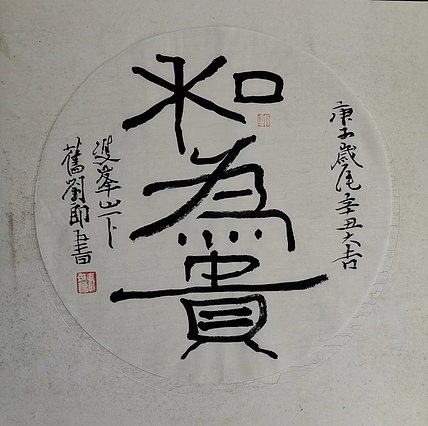 和為貴
庚子歲尾辛丑大吉
雙峯山下
舊劉郎書